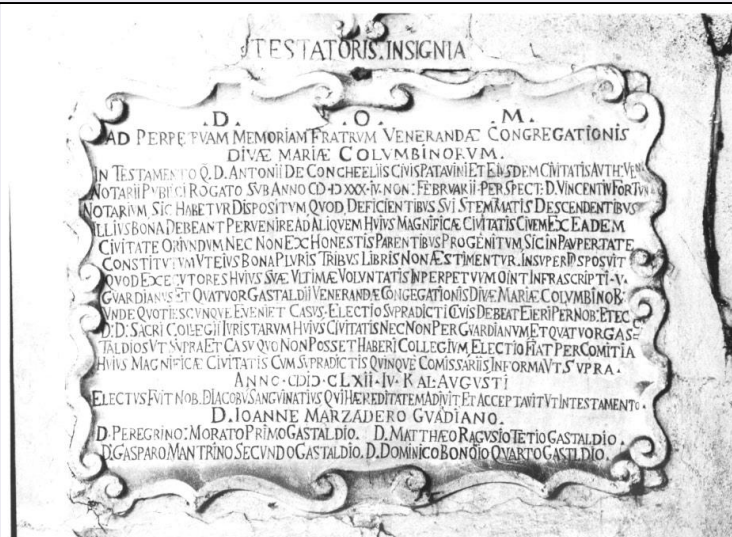 TESTATORIS.INSIGNIA
.D. .O. .M.
AD PERPETVAM MEMORIAM FRATRVM VENERANDÆ CONGREGATIONIS
DIVÆ MARIÆ COLVMBINORVM.
IN TESTAMENTO Q. D. ANTONII DE CONCHEELIIS CIVIS PATAVINI ET EIVSDEM CIVITATIS AVTH: VEN
NOTARII PVBLICI ROGATO SVB ANNO CIƆ·D·XXX·IV·NON: FEBRVARII·PER SPECT: D. VINCENTIV FORTVN
NOTARIVM, SIC HABETVR DISPOSITVM, QVOD, DEFICIENTIBVS SVI STEMMATIS DESCENDENTIBVS
ILLIVS BONA DEBEANT PERVENIRE AD ALIQVEM HVIVS MAGNIFICÆ CIVITATIS CIVEM EX EADEM
CIVITATE ORIVNDVM, NEC NON EX HONESTIS PARENTIBVS PROGENITVM, SIC IN PAVPERTATE
CONSTITVTVM VT EIVS BONA PLVRIS TRIBVS LIBRIS NON ÆSTIMENTVR. INSVPER DISPOSVIT
QVOD EXCECVTORES HVIVS SVÆ VLTIMÆ VOLVNTATIS IN PERPETVVM OINT INFRASCRIPTI·V·
GVARDIANVS ET QVATVOR GASTALDII VENERANDÆ CONGEGATIONIS DIVÆ MARIÆ COLVMBINOR:
VNDE QVOTIESCVNQVE EVENIET CASVS·ELECTIO SVPRADICTI CIVIS DEBEAT FIERI PER NOB: ET EC
D:D: SACRI COLLEGII IVRISTARVM HVIVS CIVITATIS NEC NON PER GVARDIANVM ET QVATVOR GAS-
TALDIOS VT SVPRA ET CASV QVO NON POSSET HABERI COLLEGIVM, ELECTIO FIAT PER COMITIA
HVIVS MAGNIFICÆ CIVITATIS CVM SVPRADICTIS QVINQVE COMISSARIIS INFORMA VT SVPRA.
ANNO·CIƆIƆ·CLXII·IV·KAL: AVGVSTI
ELECTVS FVIT NOB. D. IACOBVS SANGVINATIVS QVI HÆREDITATEM ADIVIT, ET ACCEPTAVIT VT IN TESTAMENTO.
D. IOANNE MARZADERO GVADIANO.
D· PEREGRINO: MORATO PRIMO GASTALDIO. D. MATTHÆO RAGVSIO TETIO GASTALDIO.
D. GASPARO MANTRINO SECVNDO GASTALDIO. D. DOMINICO BONOIO QVARTO GASTLDIO.